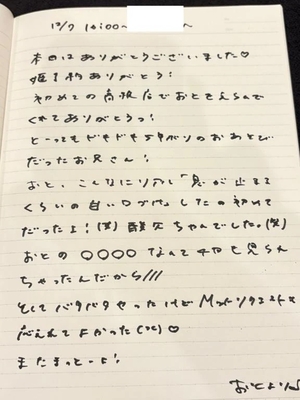 12/7 14:00~
本日はありがとうございました♡
姫予約ありがとう!
初めての高級店でおとをえらんで
くれてありがとうっ!
とーってもドキドキ
だったお兄さん!
おと、こんなにリアル「息が止まる
くらいの甘い口づけ」したの初めて
だったよ!(笑)酸欠ちゃんでした。(笑)
おとの〇〇〇〇なんて
ちゃったんだから///
そしてバタバタやったけどMットリクエスト
応えれてよかった
またまっとーよ!
おとより